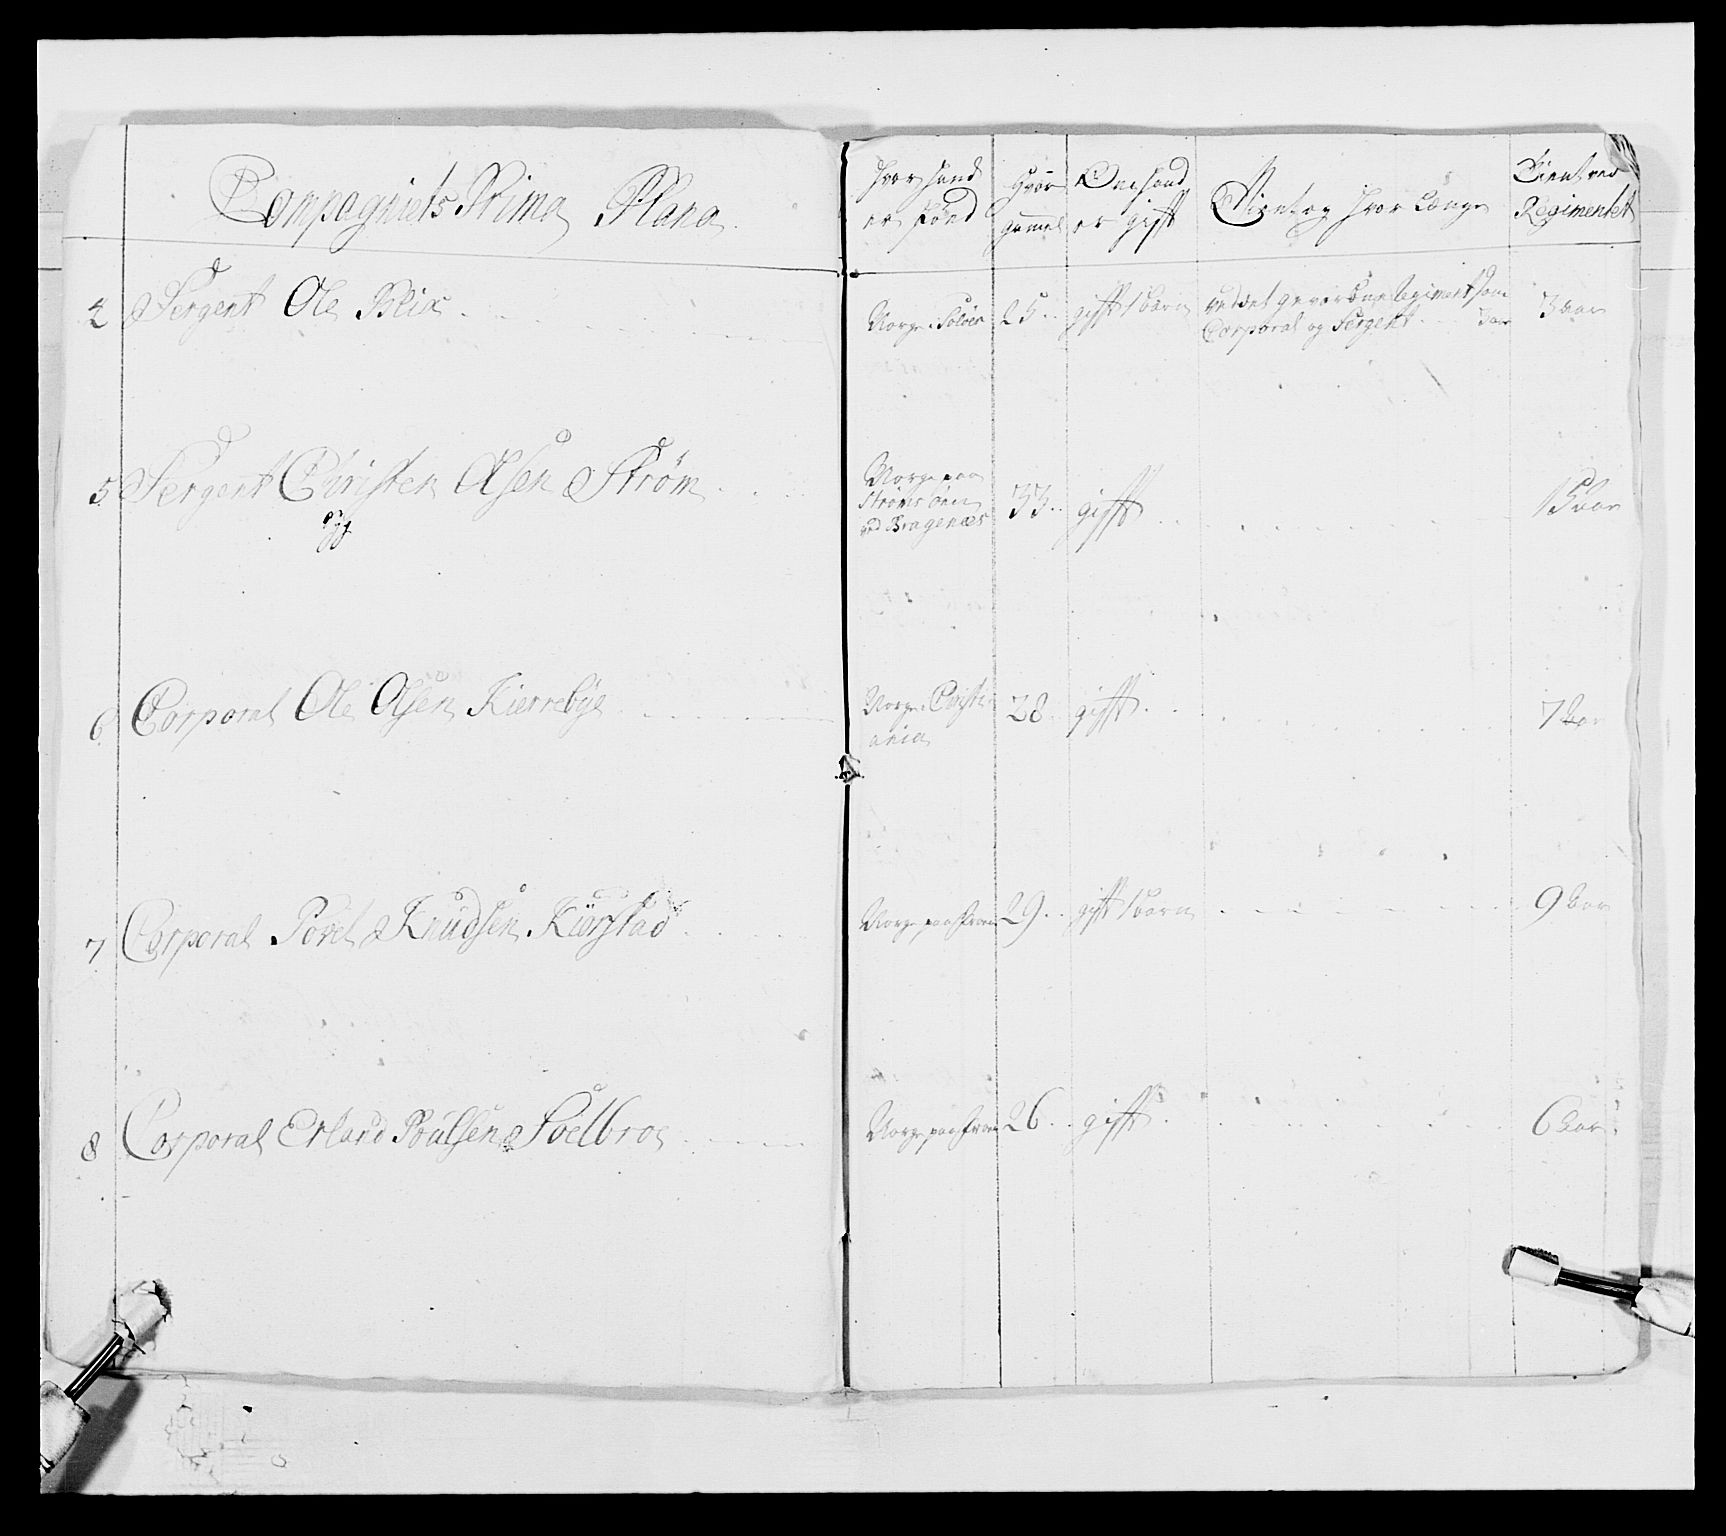 Compagniets Prima Plana
hvor hand er fød
Hvor gamel
Om hand er gift
Tient og hvor Længe
Tient ved Regimentet
4 Sergent Ole Blix
Norge i Soløer 25 gifft 1 barn
ved det gevorbne Regiment som Corporal og Sergent 3 aar
3 aar
5 Sergent Christen Olsen Strøm
syg
Norge paa Strøms øen ved Bragenæs 33 gifft
15 aar
6 Corporal Ole Olsen Kierrebye
Norge i Christiania 28 gifft
7 aar
7 Corporal Povel Knudsen Kiørstad
Norge paa 29 gift 1 barn
9 aar
8 Corporal Erland Poulsen Soelbroe
Norge paa 26 gifft
6 aar